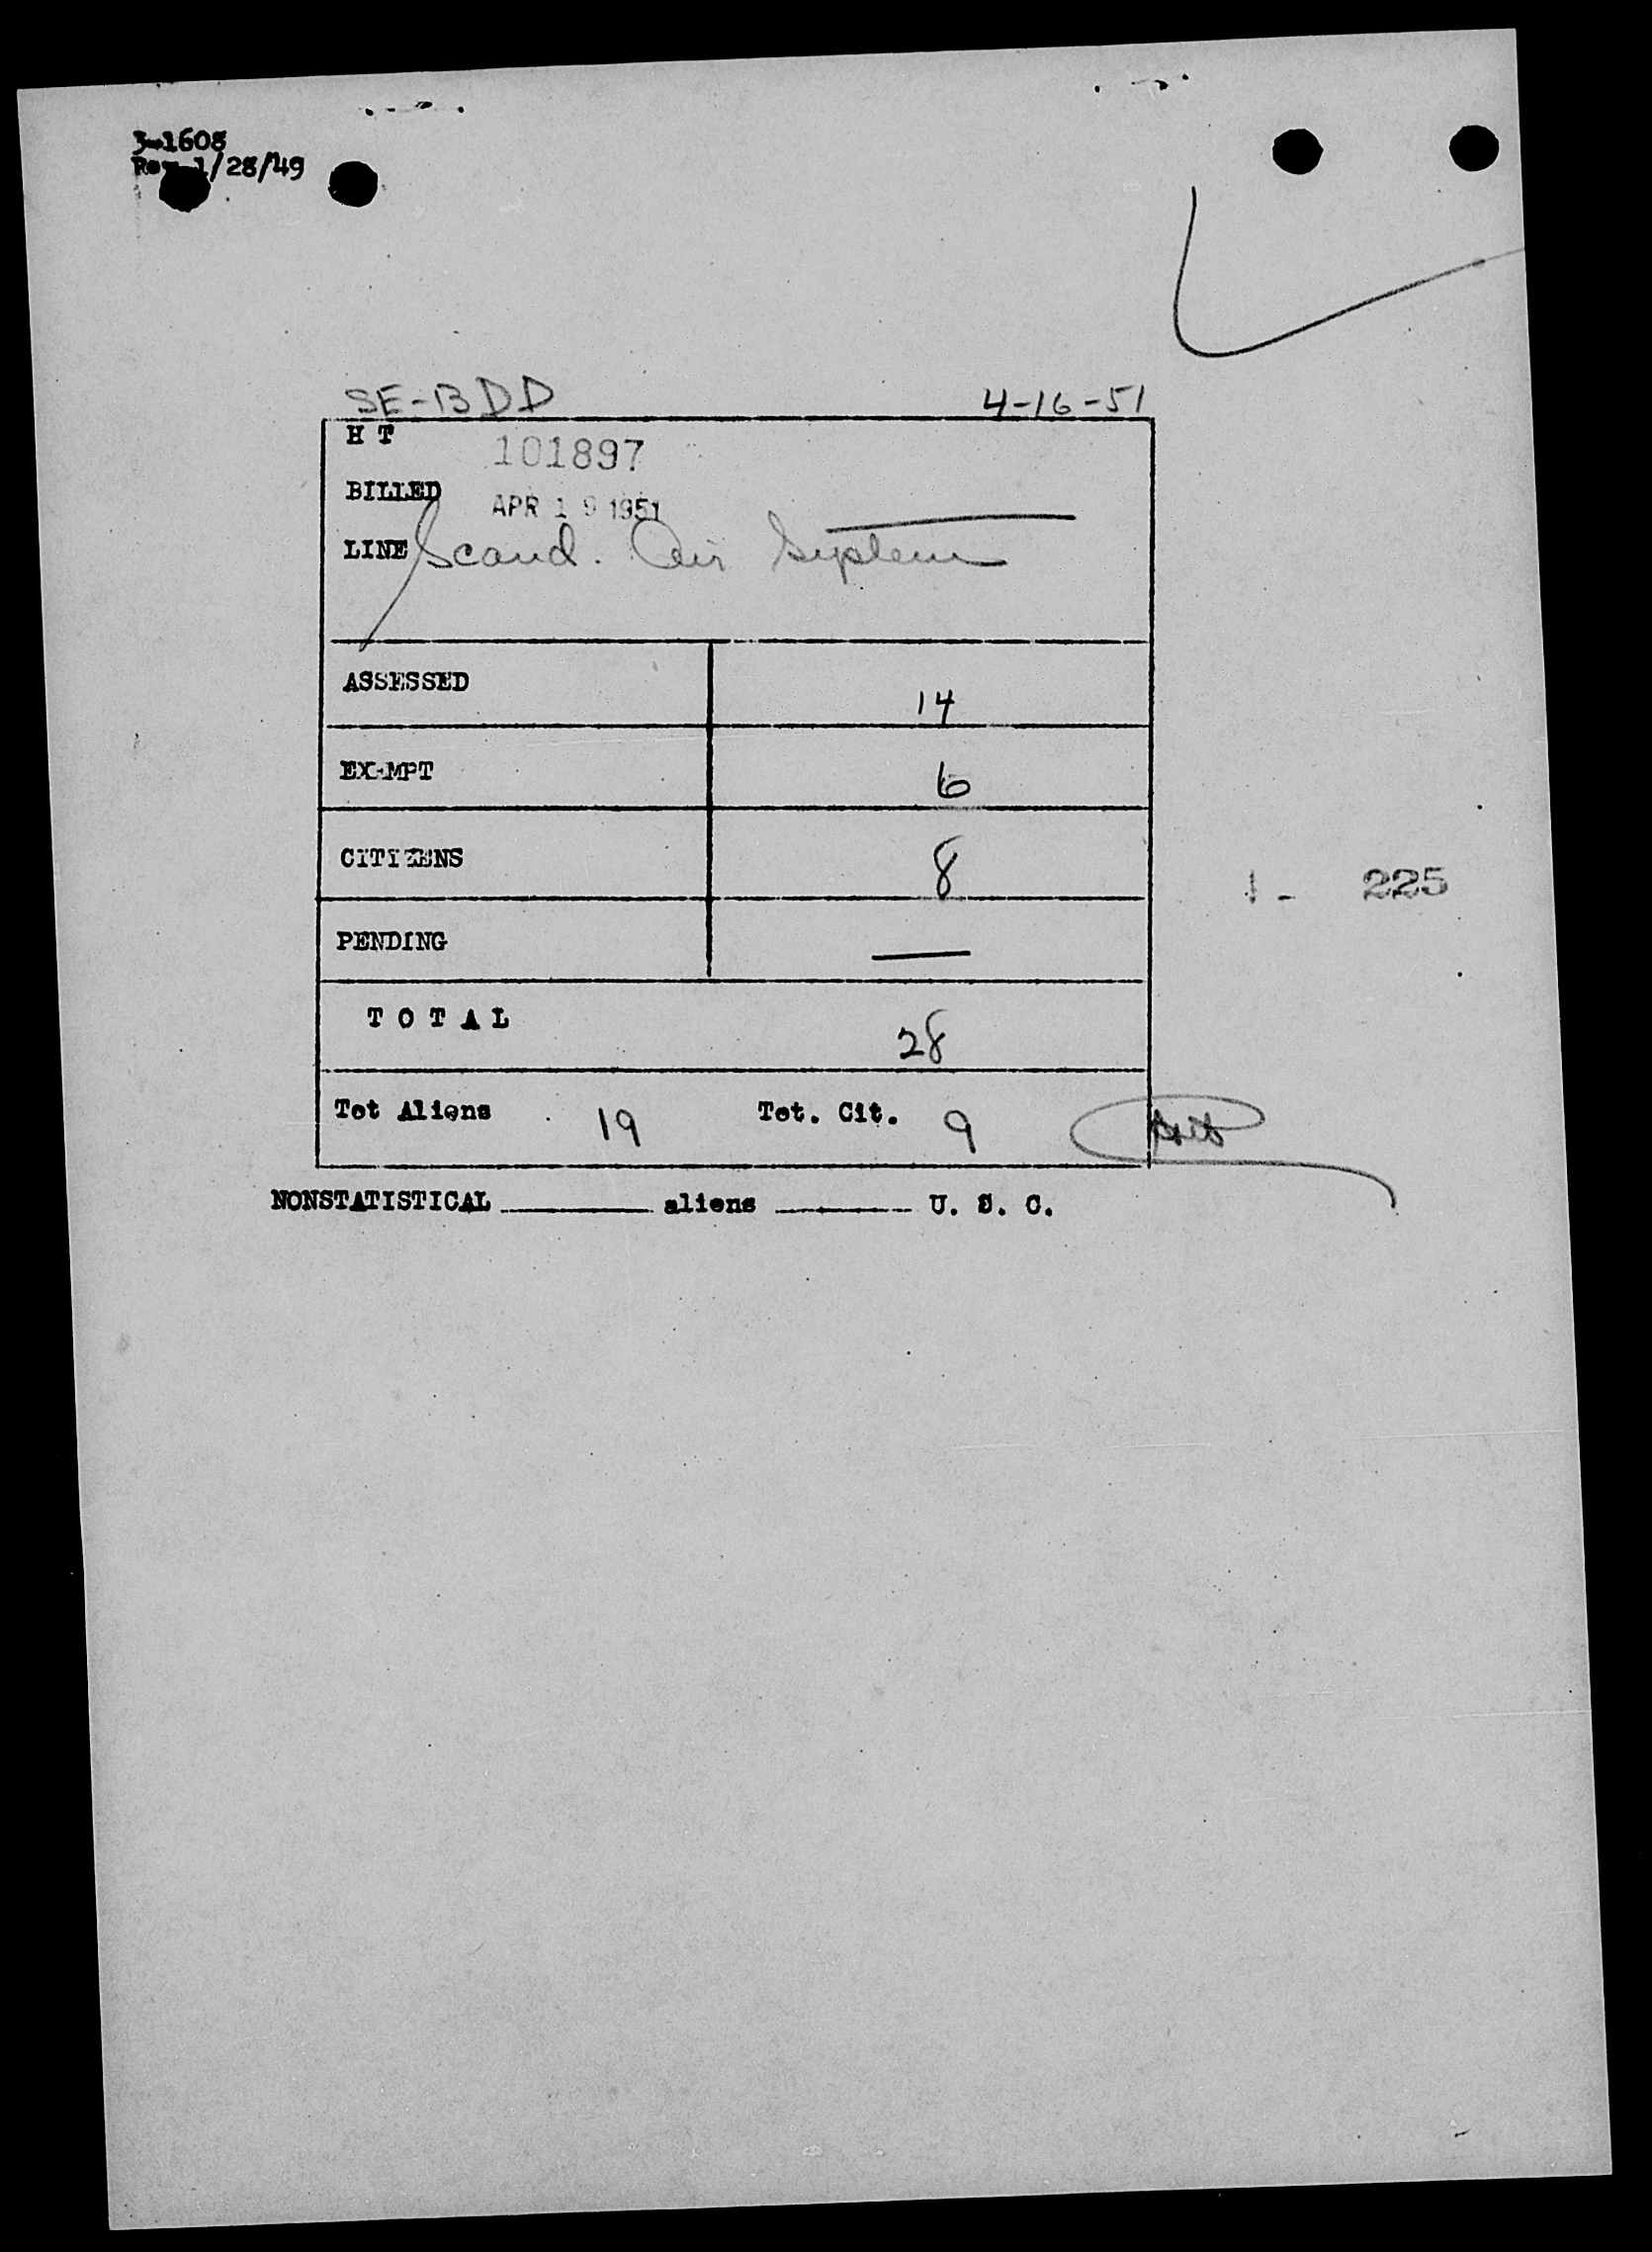 3-1608
Rev 1/28/49
SE-BDD 4-16-51
H T 101897
BILLED APR 19 1951
LINE Scand. Air System
ASSESSED 14
EXEMPT 6
CITIZENS 8
1 - 225
PENDING —
T O T A L 28
Tot Aliens 19 Tot. Cit. 9
NONSTATISTICAL ________ aliens ________ U. S. C.